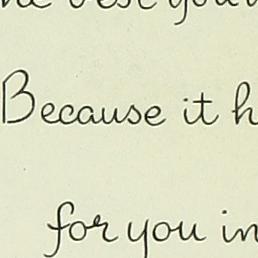 Because it h
for you in